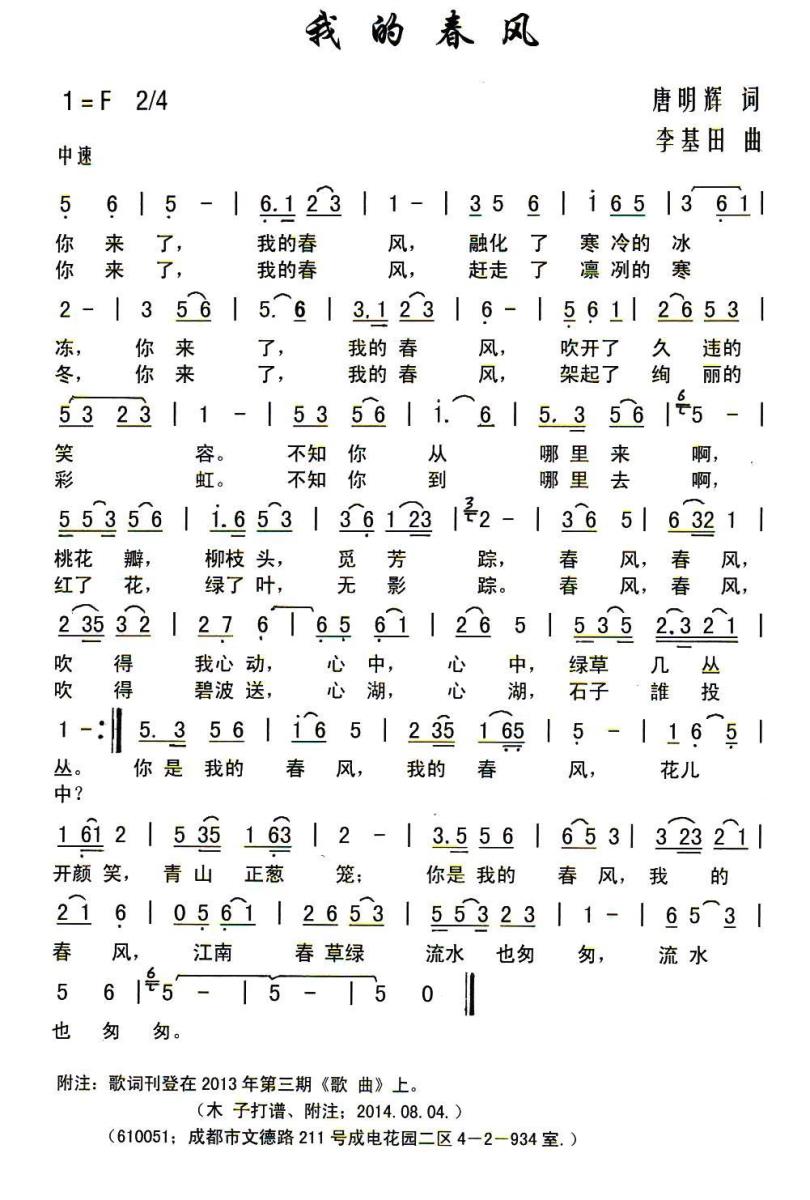 我的春风
1=F 2/4
唐明辉 词
李基田 曲
中速
5 6 | 5 - | 6.1 2 3 | 1 - | 3 5 6 | i 6 5 | 3 6 1 |
你 来 了， 我的春 风， 融化 了 寒 冷的 冰
你 来 了， 我的春 风， 赶走 了 凛 冽的 寒
2 - | 3 5 6 | 5. 6 | 3.1 2 3 | 6 - | 5 6 1 | 2 6 5 3 |
冻， 你 来 了， 我的 春 风， 吹开了 久 违的
冬， 你 来 了， 我的 春 风， 架起了 绚 丽的
5 3 2 3 | 1 - | 5 3 5 6 | i. 6 | 5. 3 5 6 | 6 5 - |
笑 容。 不知 你 从 哪 里 来 啊，
彩 虹。 不知 你 到 哪 里 去 啊，
5 5 3 5 6 | i.6 5 3 | 3 6 1 23 | 3 2 - | 3 6 5 | 6 32 1 |
桃花 瓣， 柳枝 头， 觅 芳 踪， 春 风， 春 风，
红了 花， 绿了 叶， 无 影 踪。 春 风， 春 风，
2 35 3 2 | 2 7 6 | 6 5 6 1 | 2 6 5 | 5 3 5 2.3 2 1 |
吹 得 我心 动， 心 中， 心 中， 绿草 几 丛
吹 得 碧波 送， 心 湖， 心 湖， 石子 誰 投
1 - :‖ 5. 3 5 6 | i 6 5 | 2 35 1 65 | 5 - | 1 6 5 |
丛。 你 是 我的 春 风， 我的 春 风， 花儿
中？
1 61 2 | 5 35 1 63 | 2 - | 3.5 5 6 | 6 5 3 | 3 23 2 1 |
开颜 笑， 青 山 正葱 笼； 你是 我的 春 风， 我 的
2 1 6 | 0 5 6 1 | 2 6 5 3 | 5 5 3 2 3 | 1 - | 6 5 3 |
春 风， 江南 春 草绿 流水 也匆 匆， 流 水
5 6 | 6 5 - | 5 - | 5 0 ‖
也 匆 匆。
附注：歌词刊登在 2013 年第三期《歌 曲》上。
（木 子打谱、附注；2014.08.04.）
（610051；成都市文德路 211 号成电花园二区 4－2－934 室.）